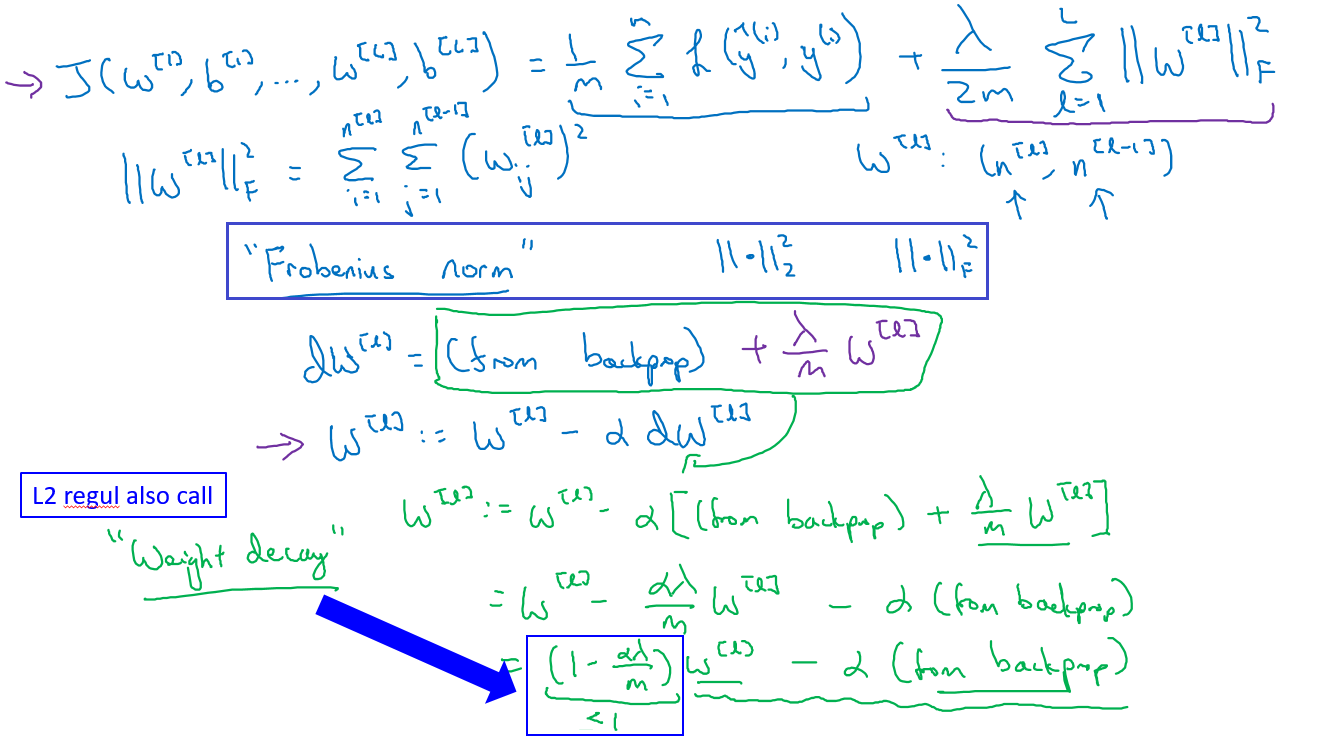 → J(w^[1], b^[1], ..., w^[L], b^[L]) = 1/m Σ_{i=1}^{m} L(ŷ^(i), y^(i)) + λ/2m Σ_{l=1}^{L} ||w^[l]||_F^2
||w^[l]||_F^2 = Σ_{i=1}^{n^[l]} Σ_{j=1}^{n^[l-1]} (w_ij^[l])^2 w^[l]: (n^[l], n^[l-1])
"Frobenius norm" ||·||_2^2 ||·||_F^2
dw^[l] = (from backprop) + λ/m w^[l]
→ w^[l] := w^[l] - α dw^[l]
L2 regul also call
"Weight decay"
w^[l] := w^[l] - α[(from backprop) + λ/m w^[l]]
= w^[l] - αλ/m w^[l] - α (from backprop)
= (1 - αλ/m) w^[l] - α (from backprop)
< 1